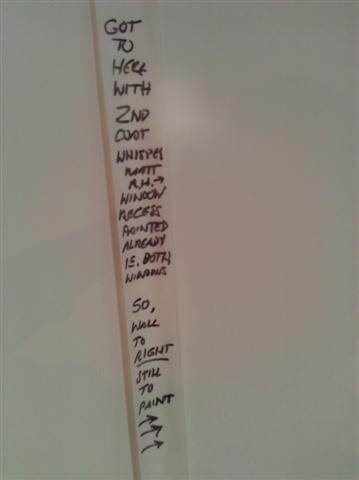 GOT
TO
HERE
WITH
2ND
COAT
WHISPER
MATT
R.H. →
WINDOW
RECESS
PAINTED
ALREADY
IE. BOTH
WINDOWS
SO,
WALL
TO
RIGHT
STILL
TO
PAINT